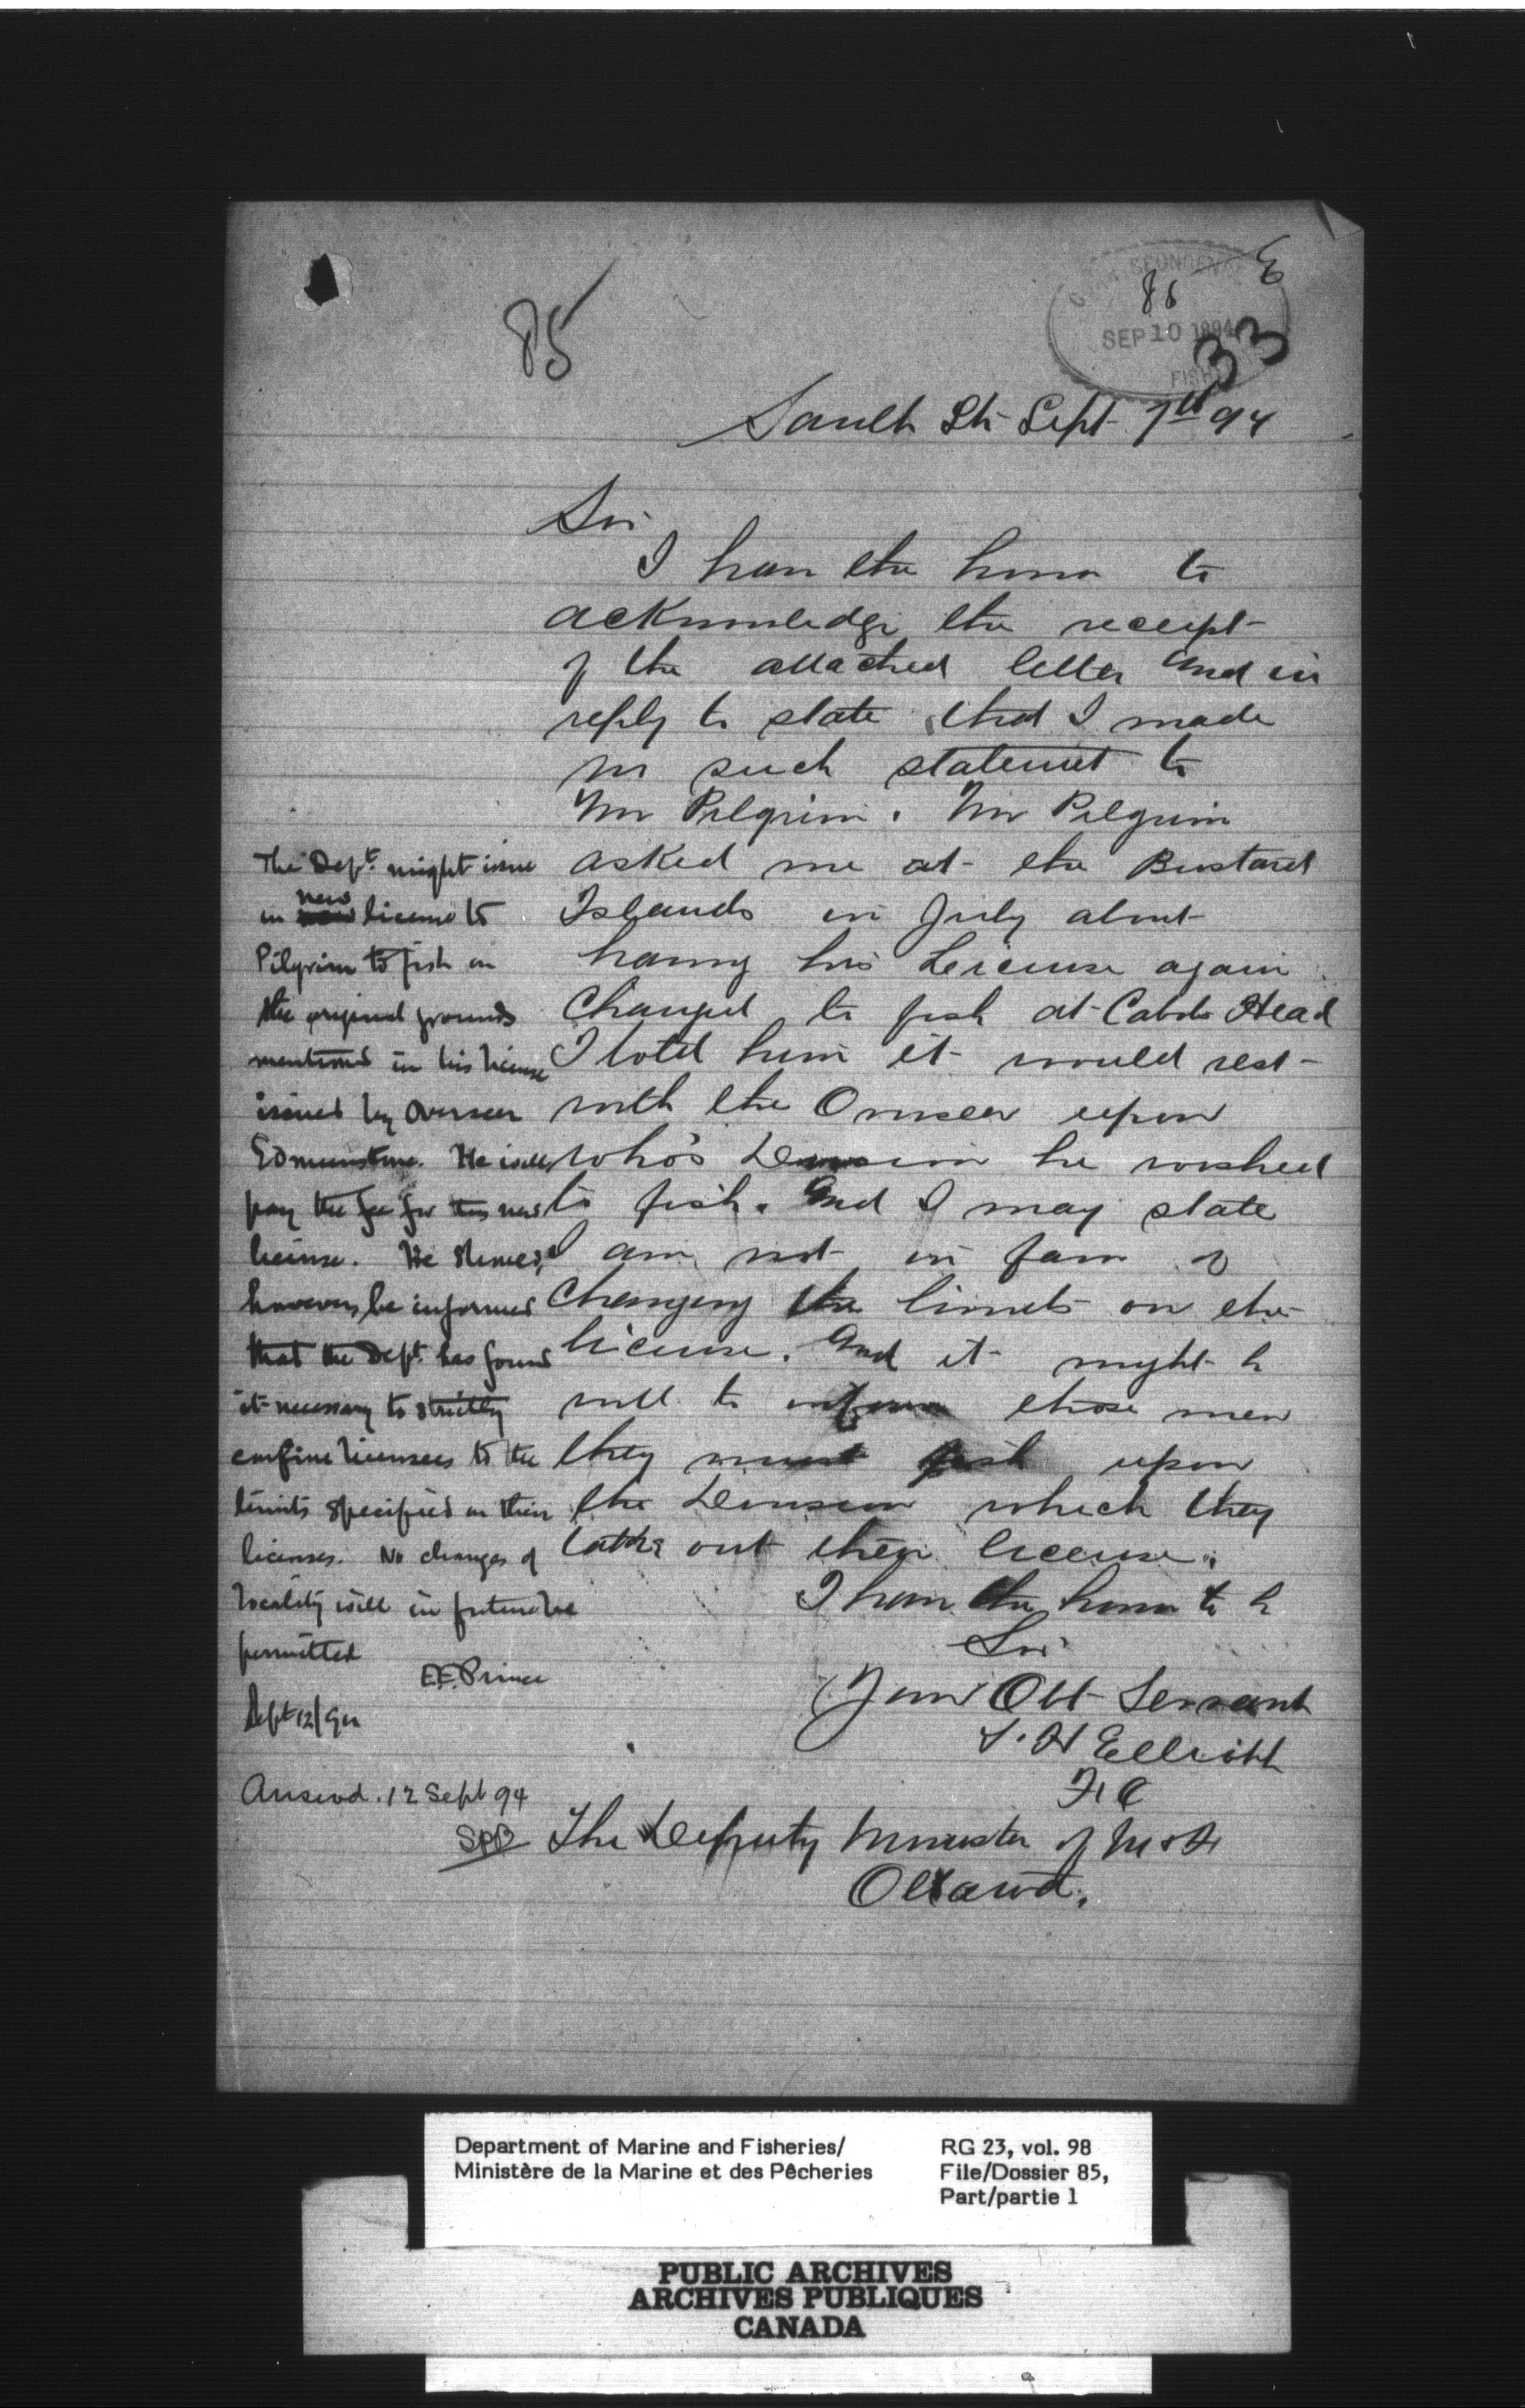 85
86
SEP 10 1894
FISH
33
Sault Ste Sept 7th 94
Sir
I have the honor to
acknowledge the receipt
of the attached letter and in
reply to state that I made
no such statement to
Mr Pilgrim. Mr Pilgrim
asked me at the Bustard
Islands in July about
having his License again
Changed to fish at Cabots Head
I told him it would rest
with the Overseer upon
who's Division he wished
to fish. and I may state
I am not in favor of
Changing the limits on the
license. and it might be
well to inform those men
they must fish upon
the Division which they
take out their license.
I have the honor to be
Sir
Your Obt Servant
T. H Elliott
F.O
The Deputy Minister of M & F
Ottawa.
The Dept. might issue
new license to
Pilgrim to fish on
the original grounds
mentioned in his license
issued by Overseer
Edmunstone. He will
pay the fee for this new
license. He should,
however, be informed
that the Dept. has found
it necessary to strictly
confine licensees to the
limits specified on their
licenses. No changes of
locality will in future be
permitted
E.E. Prince
Sept 12/94
Answd. 12 Sept 94
SPB
Department of Marine and Fisheries/
Ministère de la Marine et des Pêcheries
RG 23, vol. 98
File/Dossier 85,
Part/partie 1
PUBLIC ARCHIVES
ARCHIVES PUBLIQUES
CANADA